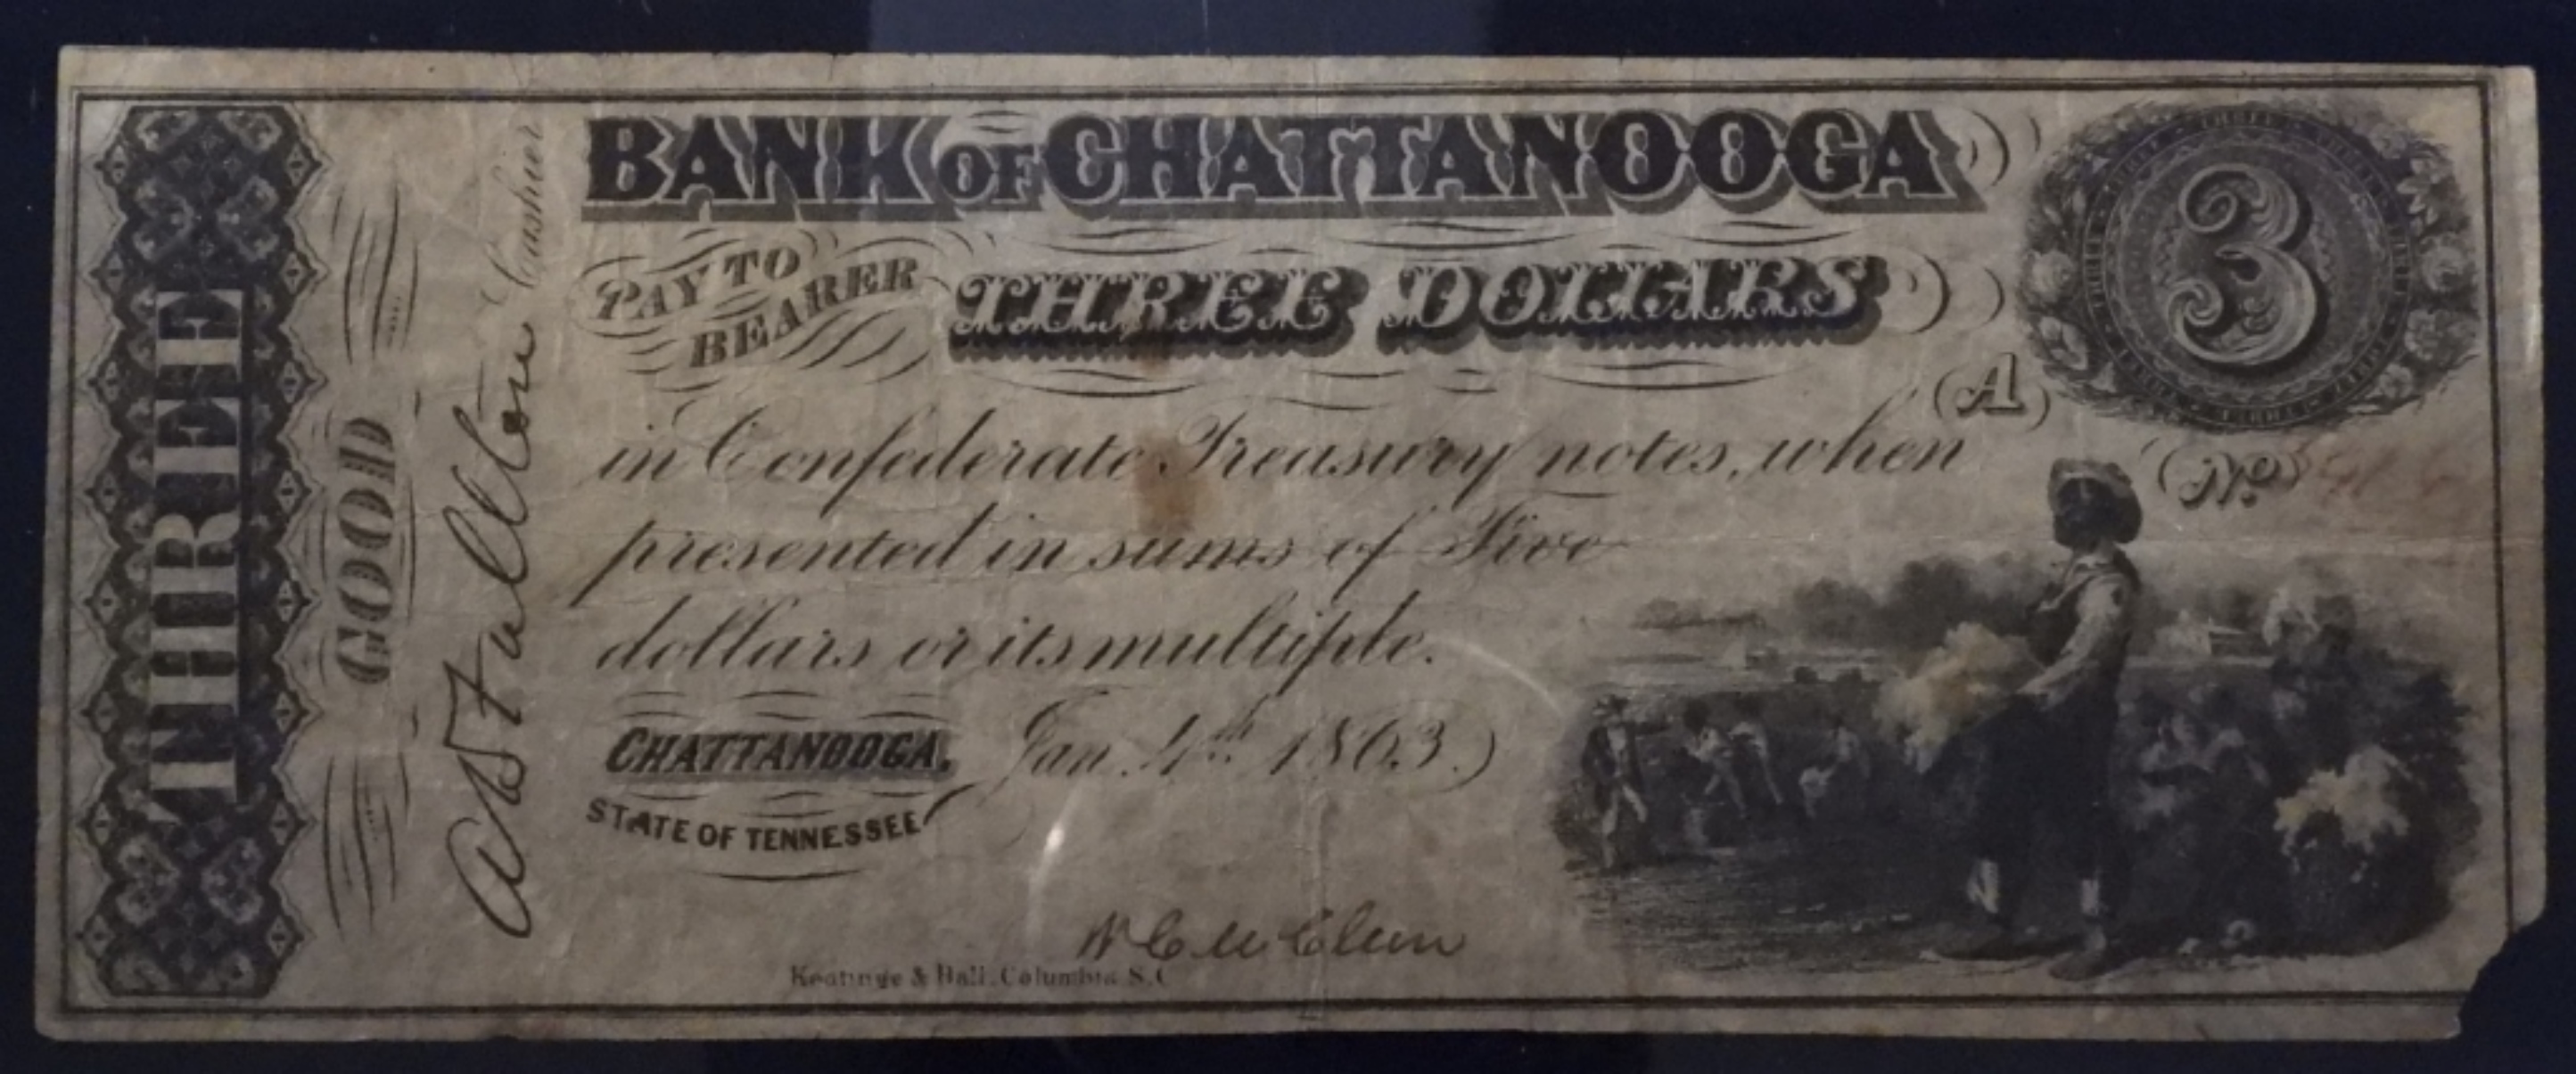 BANK OF CHATTANOOGA
PAY TO BEARER THREE DOLLARS
3
A
in Confederate Treasury notes, when
No
presented in sums of Five
dollars or its multiple.
CHATTANOOGA, Jan. 4th 1863.)
STATE OF TENNESSEE
Keatinge & Ball, Columbia S.C
THREE
GOOD
Cashier